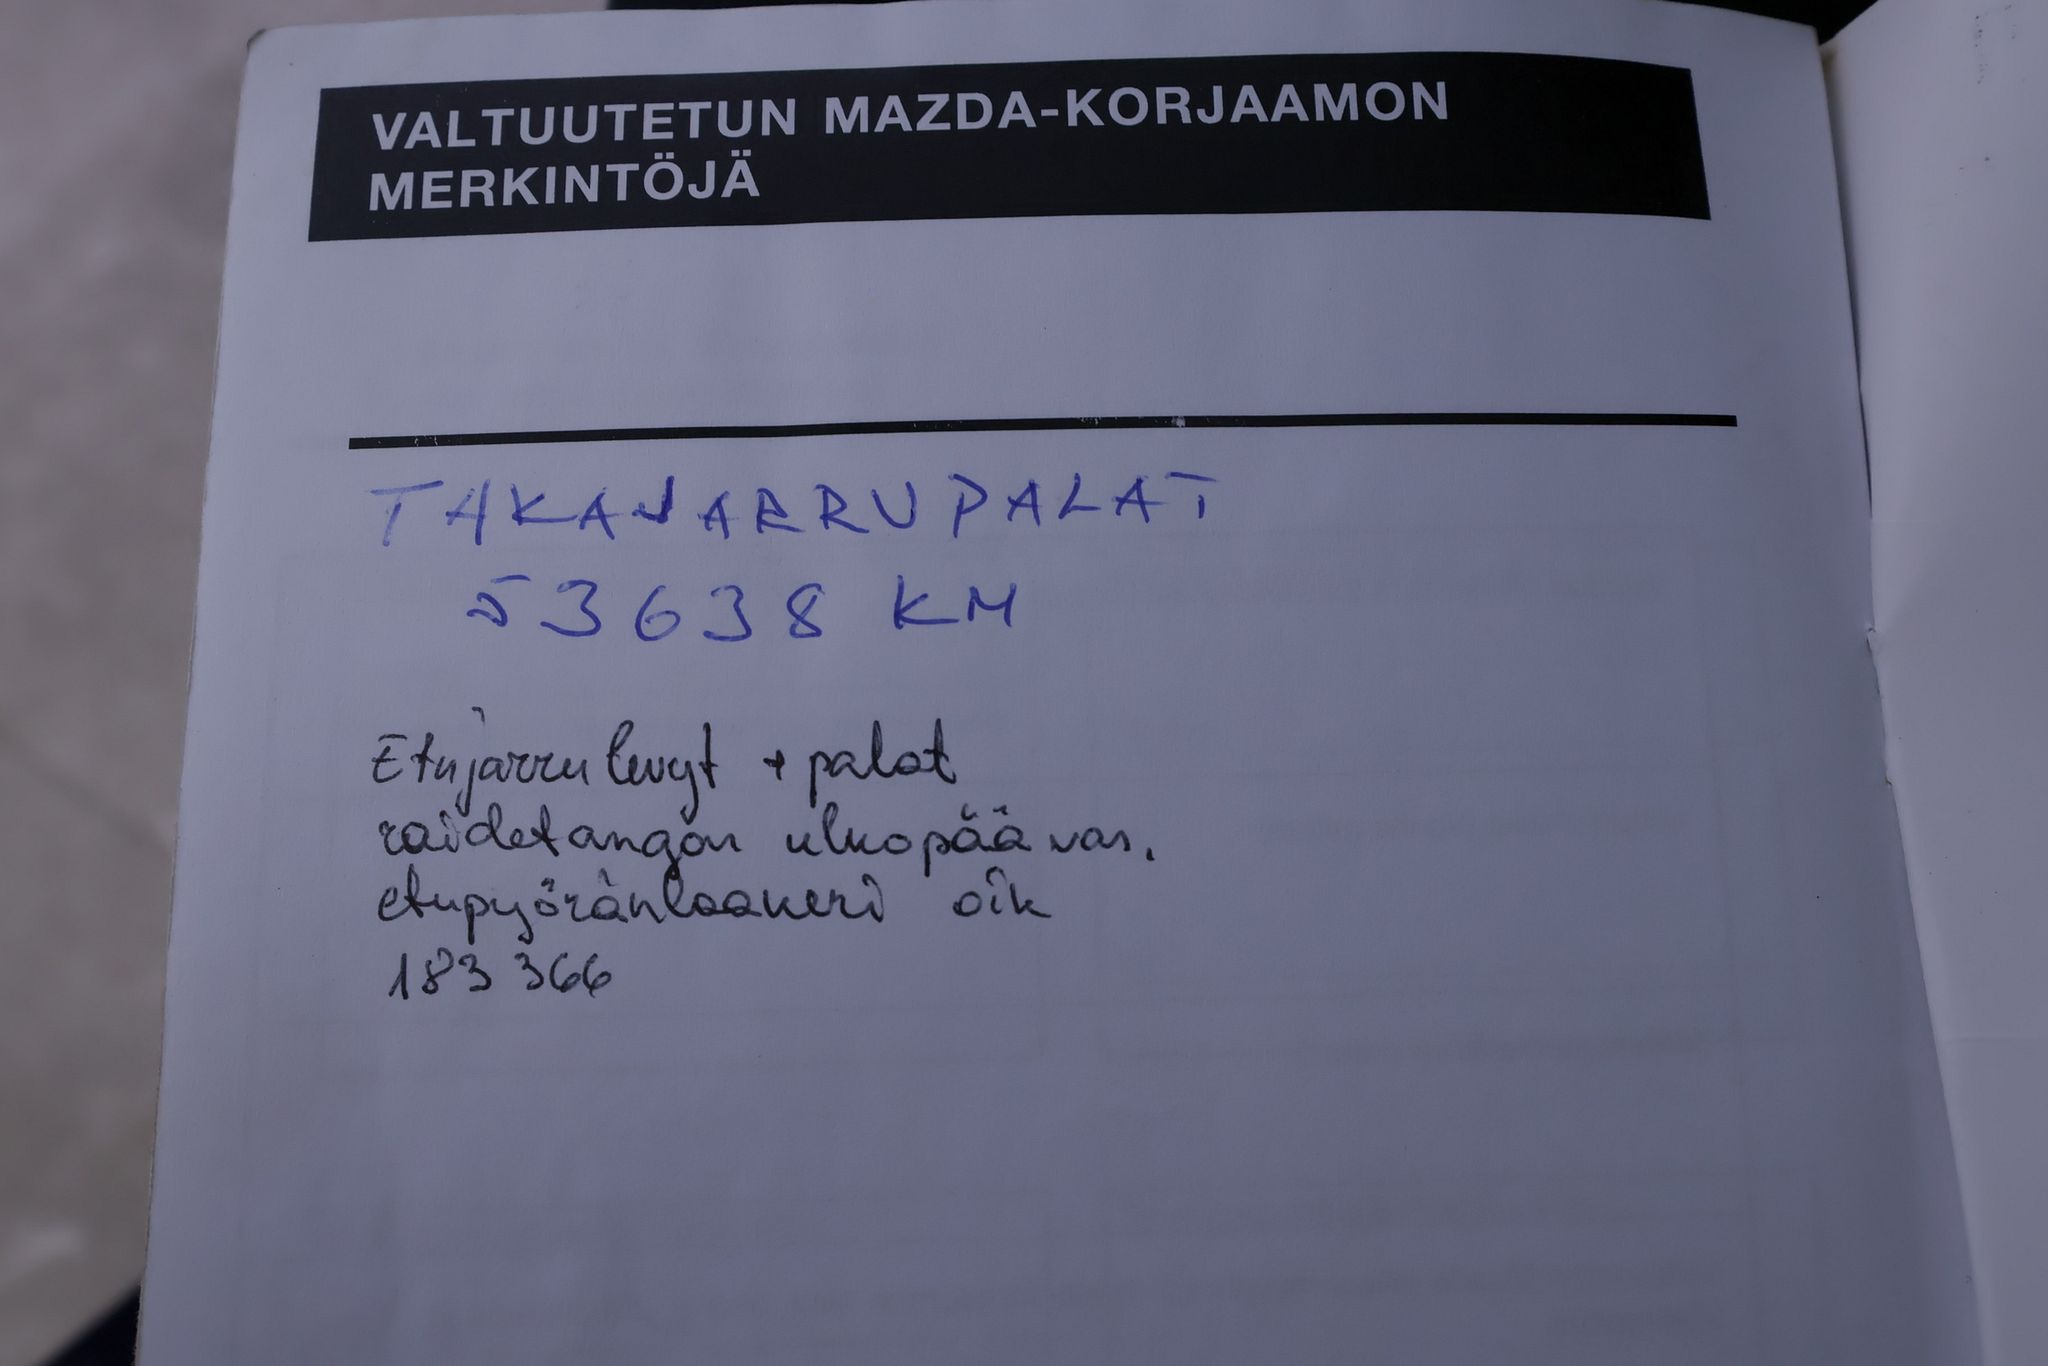 VALTUUTETUN MAZDA-KORJAAMON
MERKINTÖJÄ
TAKAJARRUPALAT
53638 KM
Etujarrulevyt + palat
raidetangon ulkopää vas.
etupyöränlaakeri oik
183 366